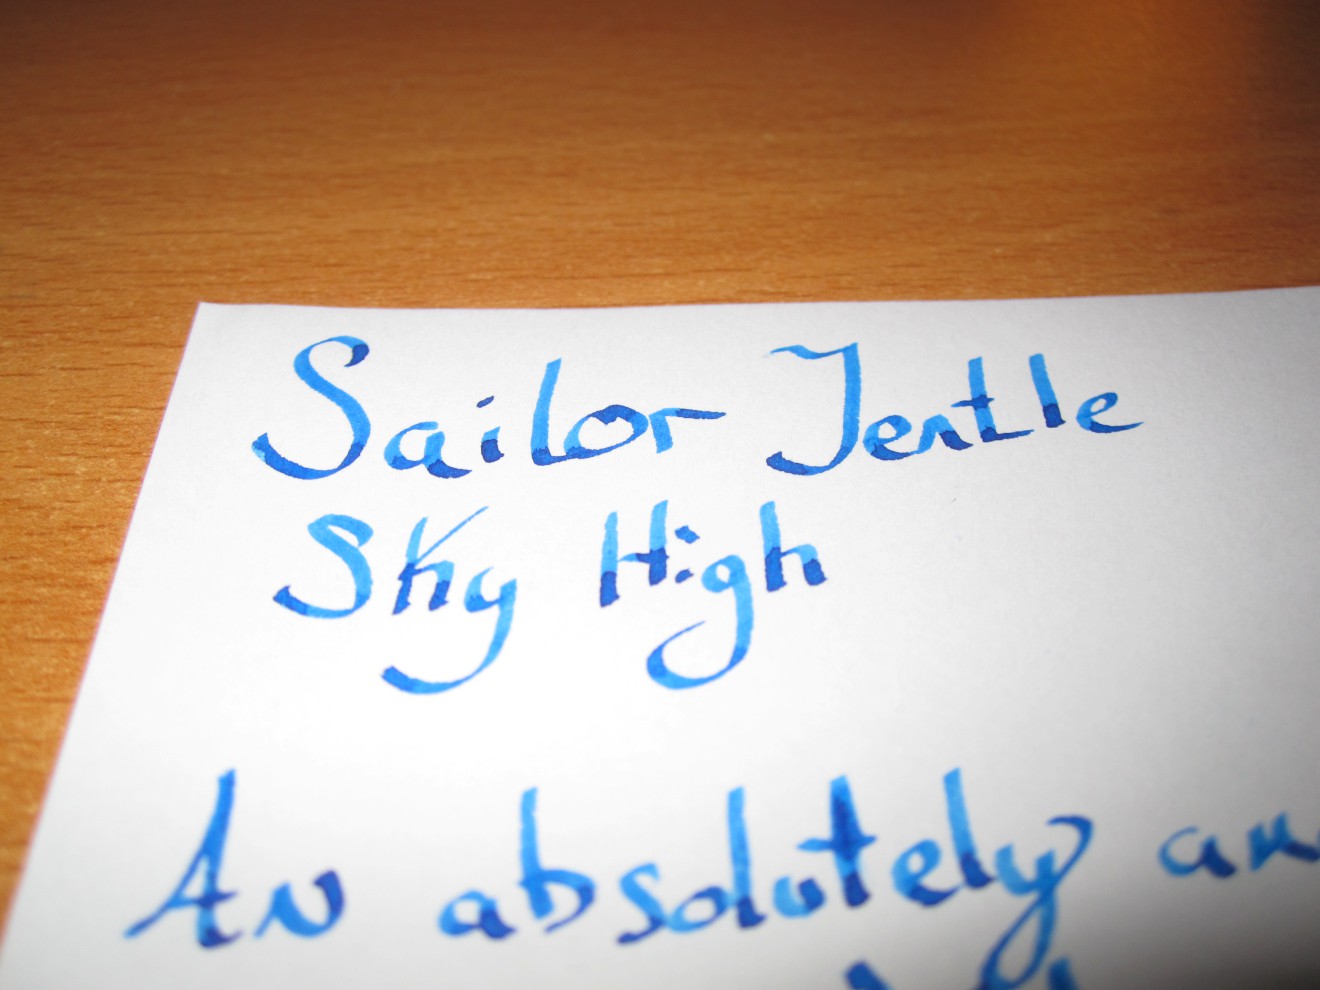 Sailor Jentle
Sky High
An absolutely